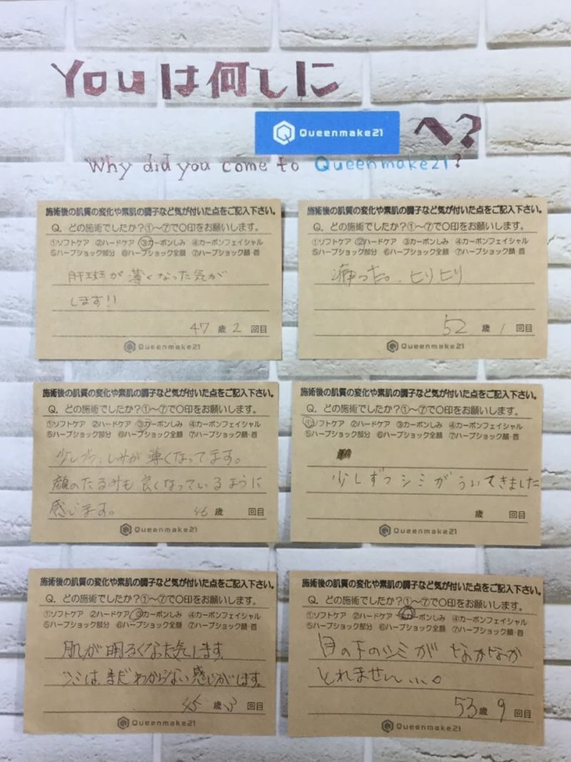 Youは何しに
Queenmake21 へ?
Why did you come to Queenmake21?
施術後の肌質の変化や素肌の調子など気が付いた点をご記入下さい。
Q. どの施術でしたか?①〜⑦で〇印をお願いします。
①ソフトケア ②ハードケア ③カーボンしみ ④カーボンフェイシャル
⑤ハーブショック部分 ⑥ハーブショック全顔 ⑦ハーブショック顔・首
肝斑が薄くなった気が
します!!
47歳 2回目
Queenmake21
施術後の肌質の変化や素肌の調子など気が付いた点をご記入下さい。
Q. どの施術でしたか?①〜⑦で〇印をお願いします。
①ソフトケア ②ハードケア ③カーボンしみ ④カーボンフェイシャル
⑤ハーブショック部分 ⑥ハーブショック全顔 ⑦ハーブショック顔・首
ヒリヒリ
52歳 1回目
Queenmake21
施術後の肌質の変化や素肌の調子など気が付いた点をご記入下さい。
Q. どの施術でしたか?①〜⑦で〇印をお願いします。
①ソフトケア ②ハードケア ③カーボンしみ ④カーボンフェイシャル
⑤ハーブショック部分 ⑥ハーブショック全顔 ⑦ハーブショック顔・首
少しづつ、しみが薄くなってます。
顔のたるみも良くなっているように
感じます。 46歳 回目
Queenmake21
施術後の肌質の変化や素肌の調子など気が付いた点をご記入下さい。
Q. どの施術でしたか?①〜⑦で〇印をお願いします。
①ソフトケア ②ハードケア ③カーボンしみ ④カーボンフェイシャル
⑤ハーブショック部分 ⑥ハーブショック全顔 ⑦ハーブショック顔・首
少しずつシミがういてきました
歳 回目
Queenmake21
施術後の肌質の変化や素肌の調子など気が付いた点をご記入下さい。
Q. どの施術でしたか?①〜⑦で〇印をお願いします。
①ソフトケア ②ハードケア ③カーボンしみ ④カーボンフェイシャル
⑤ハーブショック部分 ⑥ハーブショック全顔 ⑦ハーブショック顔・首
肌が明るくなった気します。
シミは、まだわからない感じがします。
45歳 3回目
Queenmake21
施術後の肌質の変化や素肌の調子など気が付いた点をご記入下さい。
Q. どの施術でしたか?①〜⑦で〇印をお願いします。
①ソフトケア ②ハードケア ③カーボンしみ ④カーボンフェイシャル
⑤ハーブショック部分 ⑥ハーブショック全顔 ⑦ハーブショック顔・首
目の下のシミが なかなか
とれません...。
53歳 9回目
Queenmake21